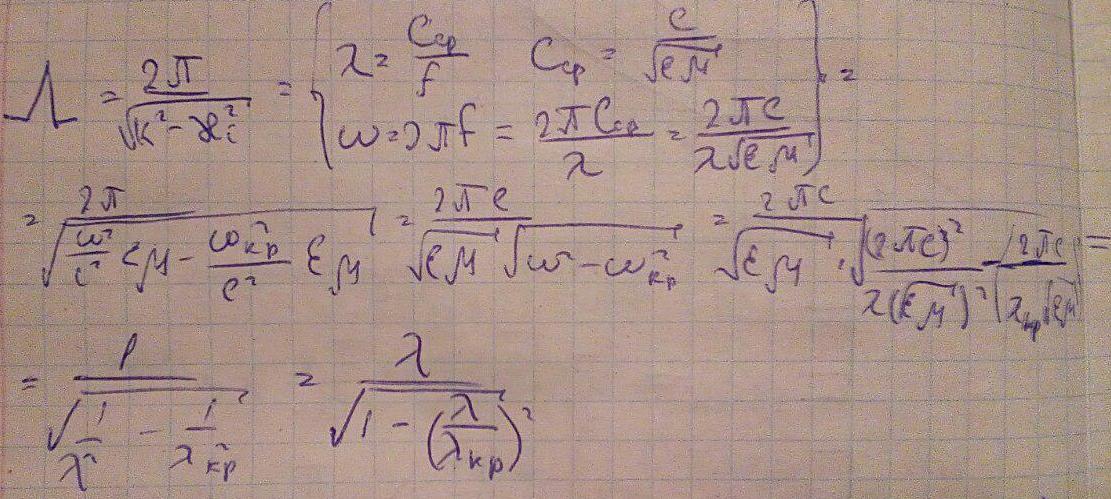 Λ = 2π / √(k² − ϰᵢ²) = { λ = Cср / f   Cср = c / √(εμ)
ω = 2πf = 2πCср / λ = 2πc / (λ√(εμ)) } =
= 2π / √(ω²/c² εμ − ωкр²/c² εμ) = 2πc / (√(εμ) √(ω² − ω²кр)) = 2πc / (√(εμ) · √((2πc)² / (λ(√(εμ))²) − (2πc / (λкр√(εμ)) =
= 1 / √(1/λ² − 1/λ²кр) = λ / √(1 − (λ/λкр)²)